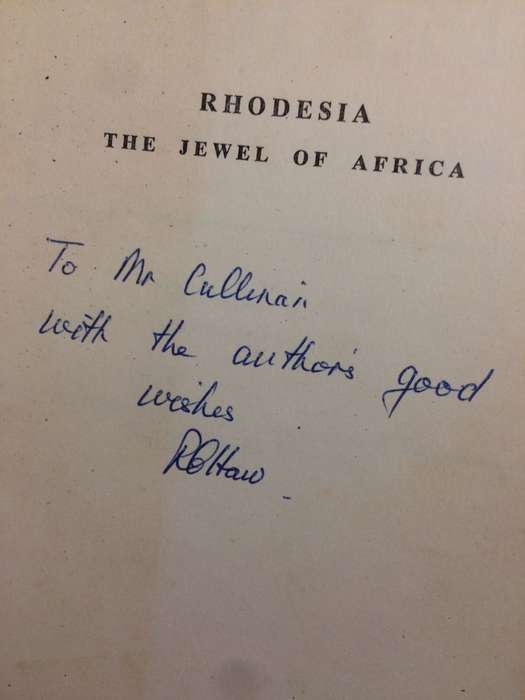 RHODESIA
THE JEWEL OF AFRICA
To Mr Cullinan
with the author's good
wishes
RCHaw